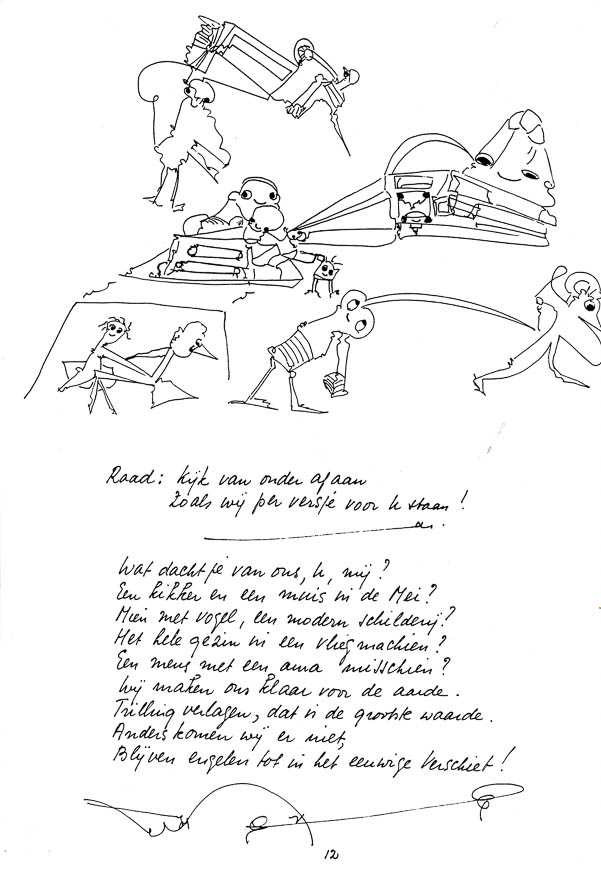 Raad: Kijk van onder af aan
Zoals wij per versje voor U staan!
Wat dacht je van ons, U, mij?
Een kikker en een muis in de Mei?
Mien met vogel, een modern schilderij?
Het hele gezin in een vliegmachien?
Een mens met een ama misschien?
Wij maken ons klaar voor de aarde.
Trilling verlagen, dat is de grootste waarde.
Anders komen wij er niet,
Blijven engelen tot in het eeuwige Verschiet!
12